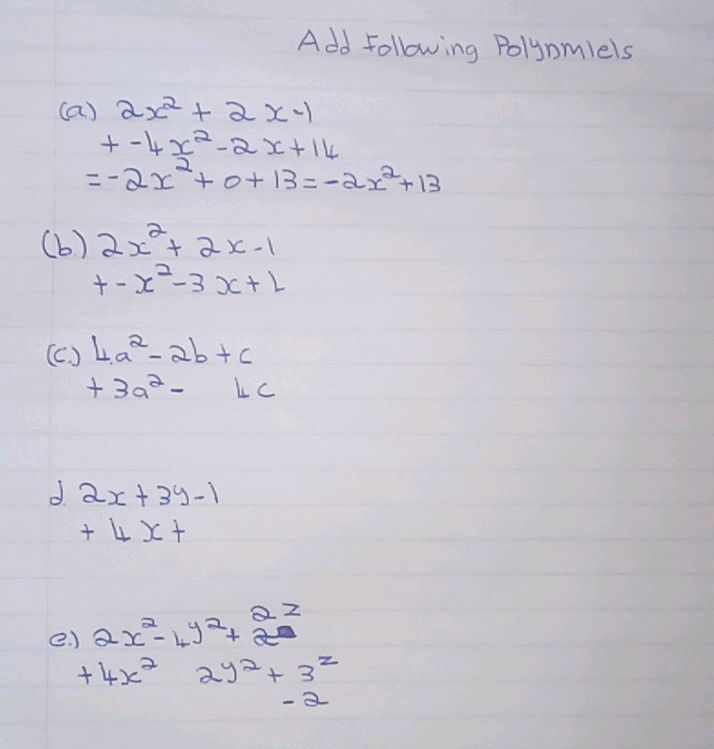 Add Following Polynmiels
(a) 2x² + 2x-1
+ -4x²-2x+14
=-2x²+0+13=-2x²+13
(b.) 2x²+ 2x-1
+-x²-3x+
(c.) 4a²-2b+c
+3a²- 4c
d. 2x+3y-1
+ 4x+
2z
e.) 2x²-4y²+ 2
+4x² 2y²+ 3z
-2